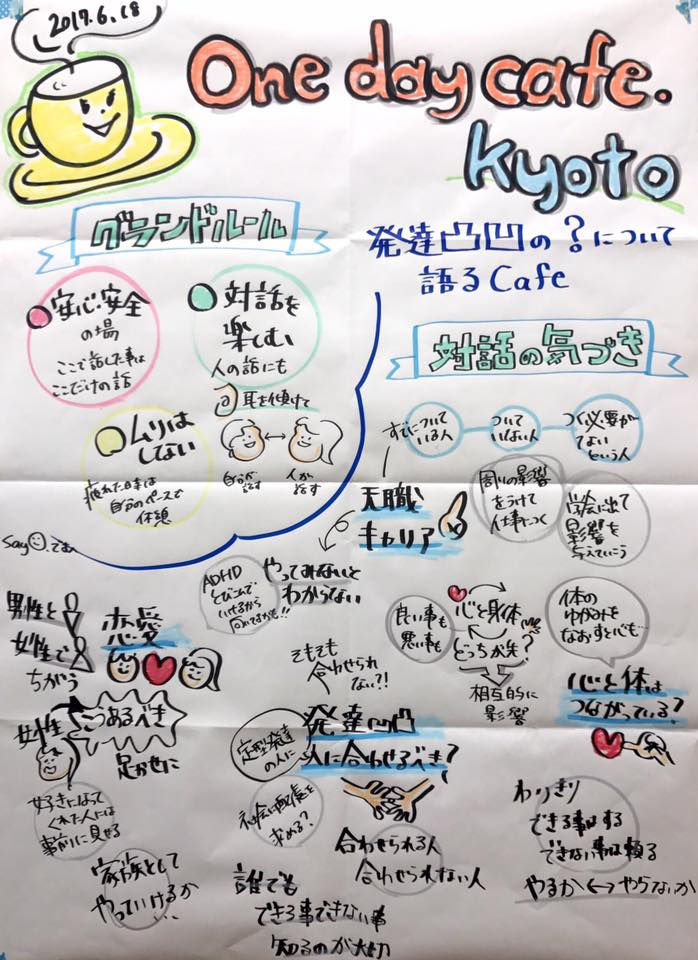 2017.6.18
One day cafe.
kyoto
グランドルール
発達凸凹の?について
語るCafe
安心・安全
の場
ここで話した事は
ここだけの話
対話を
楽しむ
人の話にも
耳を傾けて
自分が
話す
人が
話す
ムリは
しない
疲れた時は
自分のペースで
休憩
対話の気づき
すでについて
いる人
ついて
いない人
つく必要が
ない
という人
天職
キャリア
周りの影響
をうけて
仕事につく
社会に出て
影響を
与えていこう
やってみないと
わからない
ADHD
とびこんで
いけるから
男性と
女性で
ちがう
恋愛
女性
こうあるべき
足かせに
好きになって
くれた人には
事前に見せる
家族として
やっていけるか
そもそも
合わせられ
ない?!
発達凸凹
人に合わせるべき?
定型発達
の人に
社会に配慮を
求める?
合わせられる人
合わせられない人
誰でも
できる事できない事
知るのが大切
良い事も
悪い事も
心と身体
どっちが先?
相互的に
影響
体の
ゆがみを
なおすと心も…
心と体は
つながっている?
わりきり
できる事はする
できない事は頼る
やるか←→やらないか